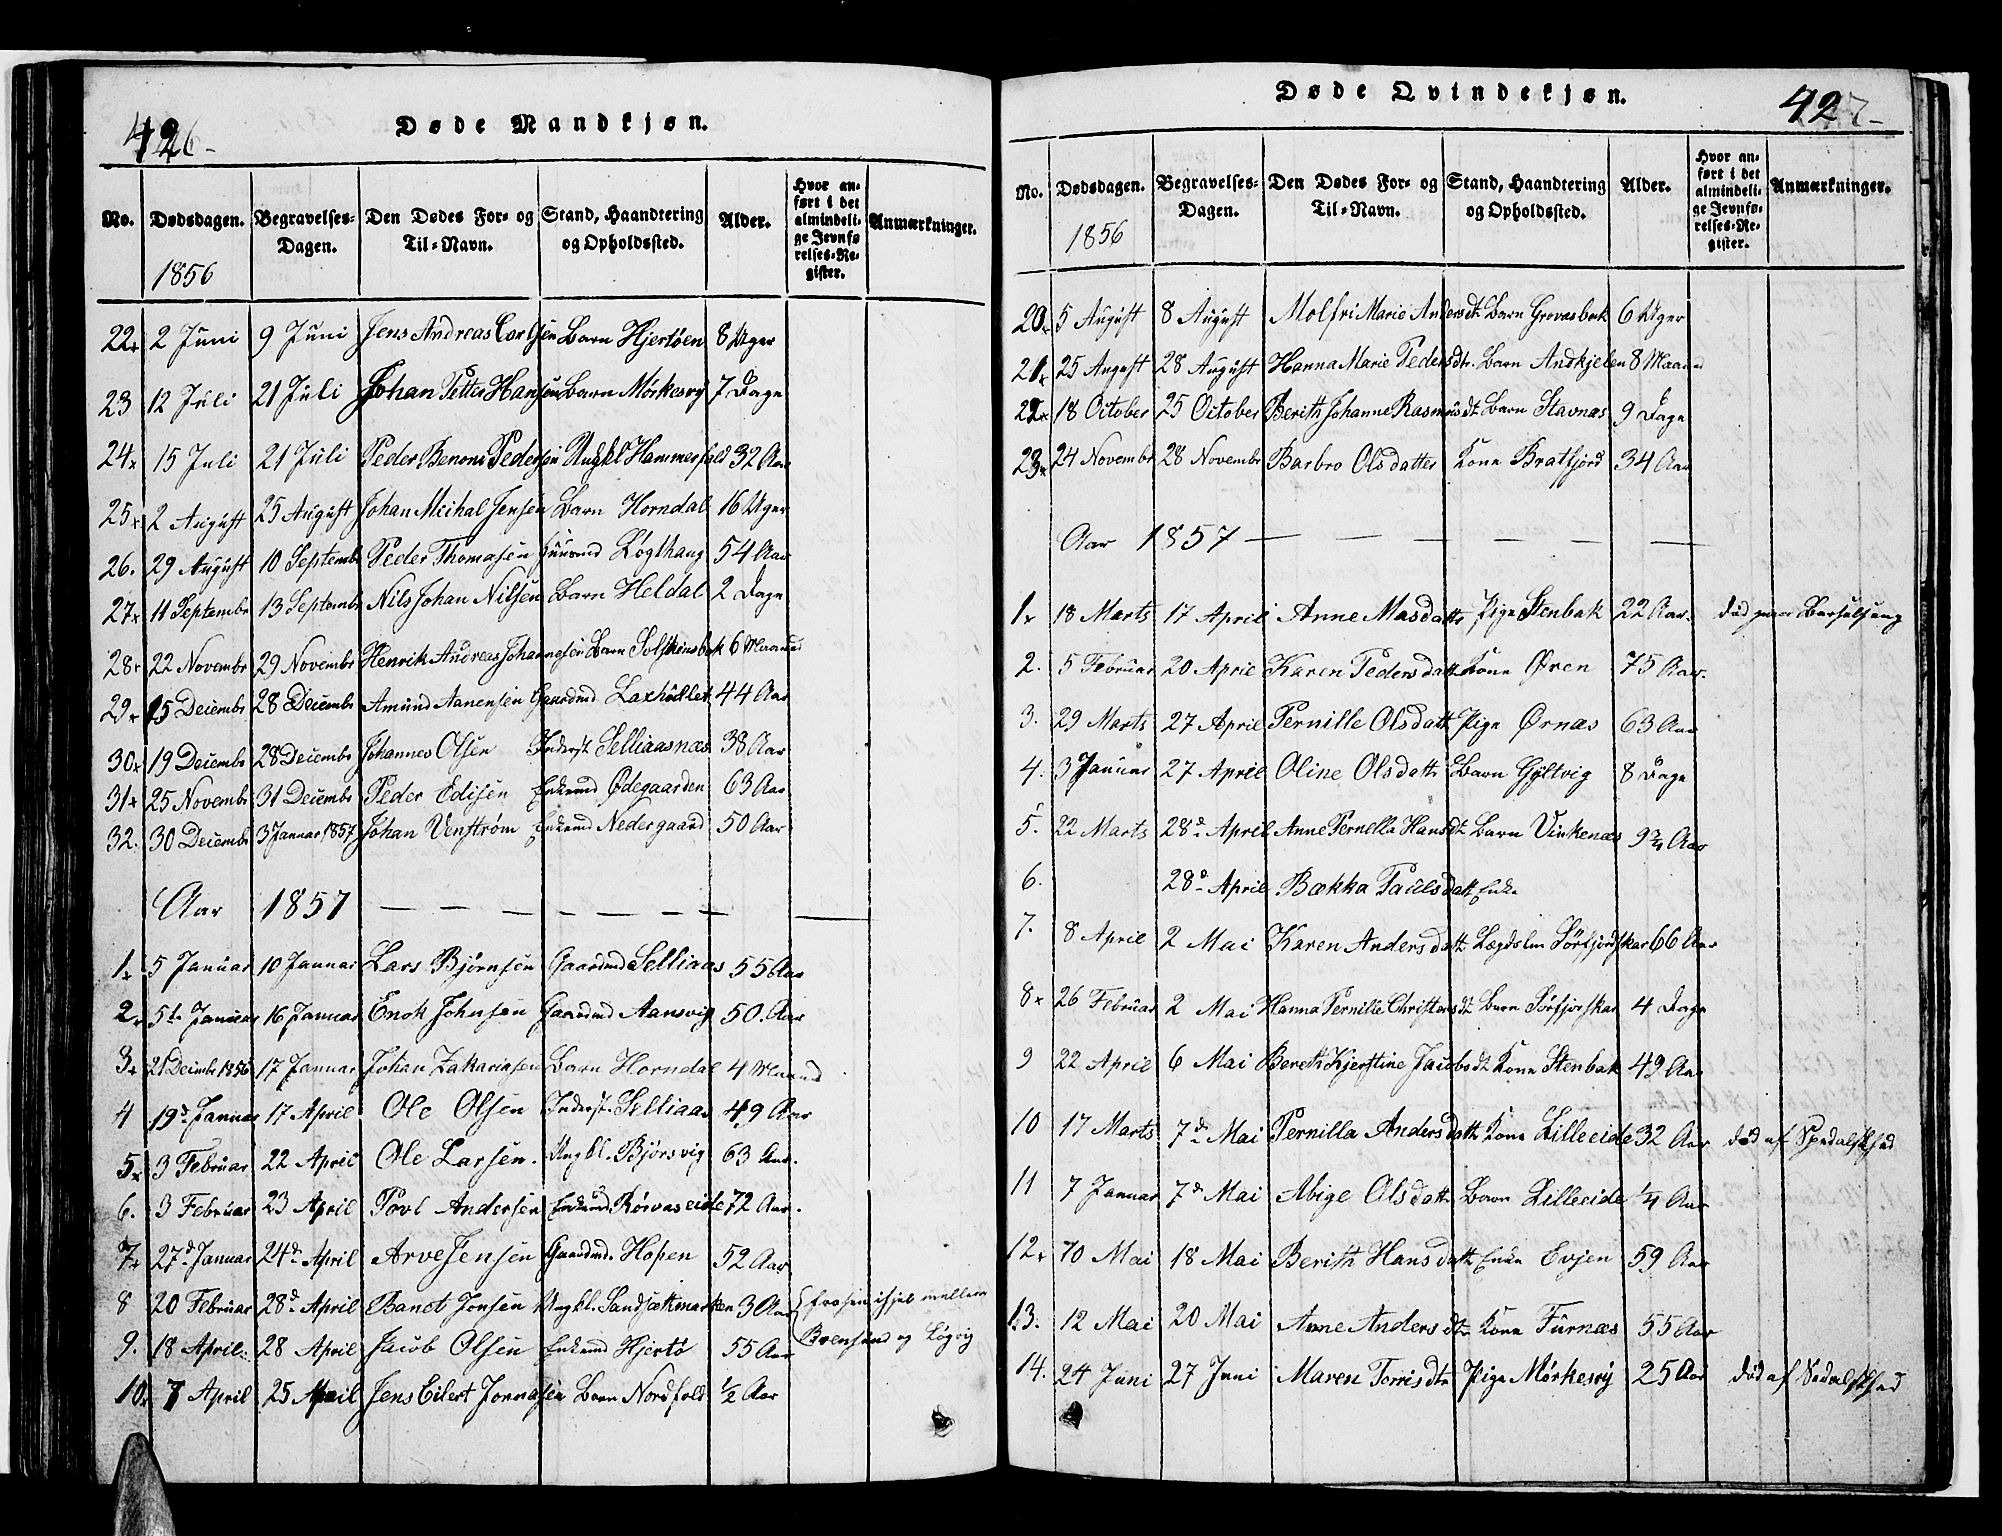 426-
Døde Mandkjøn.
No. Dødsdagen. Begravelses-Dagen. Den Dødes For- og Til-Navn. Stand, Haandtering og Opholdssted. Alder. Hvor anført i det almindelige Jevnførelses-Register. Anmærkninger.
1856
22 2 Juni 9 Juni Jens Andreas Carlsen Barn Hjertøen 8 Uger
23 12 Juli 21 Juli Johan Petter Hansen Barn Mørkesvig 7 Dage
24 15 Juli 21 Juli Peder Benoni Pedersen Ungkl Hammerfald 32 Aar
25 2 August 25 August Johan Mickal Jensen Barn Horndal 16 Uger
26. 29 August 10 Septembr Peder Thomasen Huusmd Løgthaug 54 Aar
27 11 Septembr 13 Septembr Nils Johan Nilsen Barn Heldal 2 Dage
28 22 Novembr 29 Novembr Henrik Andreas Johannesen Barn Solskinsbak 6 Maaned
29 15 Decembr 28 Decembr Amund Aanensen Gaardmd Laxhullet 44 Aar
30 19 Decembr 28 Decembr Johannes Olsen Inderst Selliaasnæs 38 Aar
31 25 Novembr 31 Decembr Peder Edisen Enkemd Ødegaarden 63 Aar
32. 30 Decembr 3 Januar 1857 Johan Venstrøm Enkemd Nedergaard 50 Aar
Aar 1857 — — — — — — — —
1 5 Januar 10 Januar Lars Bjørnsen Gaardmd Selliaas 55 Aar
2 5te Januar 16 Januar Enok Johnsen Gaardmd Aansvig 50. Aar
3 21 Decimbr 1856 17 Januar Johan Zakariasen Barn Horndal 4 Maaned
4 19d Januar 17 April Ole Olsen Inderst. Selliaas 49 Aar
5 3 Februar 22 April Ole Larsen. Ungkl. Bjørsvig 63 Aar.
6. 3 Februar 23 April Povl Andersen Enkemd Rørvaseide 72 Aar.
7 27d Januar 24d April Arve Jensen Gaardmd. Hopen 52 Aar
8 20 Februar 28d April Bandt Jonsen Ungkl. Sandsætmarken 3 Aar { frosen ihjel mellem
9. 18 April. 28 April Jacob Olsen Enkemd Hjertø 55 Aar Brensund og Løgvig
10 7 April 25 April Jens Eilert Jonnasen Barn Nordfold ½ Aar
Døde Qvindekjøn.
427-
No. Dødsdagen. Begravelses-Dagen. Den Dødes For- og Til-Navn. Stand, Haandtering og Opholdssted. Alder. Hvor anført i det almindelige Jevnførelses-Register. Anmærkninger.
1856
20 5 August 8 August Molfri Marie Andersdt Barn Grovasbak 6 Uger
21 25 August 28 August Hanna Marie Pedersdtr. Barn Andkjelen 8 Maaned
22 18 October 25 October Berith Johanne Rasmusdt Barn Stavnæs 9 Dage
23 24 Novembr 28 Novembr Barbro Olsdatter Kone Bratfjord 34 Aar
Aar 1857 — — — — —
1 18 Marts 17 April Anne Masdattr Pige Stenbak 22 Aar. død paa Barselseng
2. 5 Februar 20 April Karen Pedersdattr Kone Øren 75 Aar.
3. 29 Marts 27 April Pernille Olsdattr Pige Ørnæs 63 Aar
4. 3 Januar 27 April Oline Olsdattr Barn Gyltvig 8 Dage
5. 22 Marts 28d April Anne Pernella Hansdt Barn Vinkenæs 9¾ Aar
6. 28d April Bækka Paulsdattr Enke
7. 8 April 2 Mai Karen Andersdattr Lægdslm Sörfjordskar 66 Aar
8 26 Februar 2 Mai Hanna Pernille Christensdt Barn Sörfjorskar 4 Dage
9 22 April 6 Mai Bereth Kjerstine Jacobsdt Kone Stenbak 49 Aar
10 17 Marts 7d Mai Pernilla Andersdattr Kone Lilleeide 32 Aar død af Spedalskhed
11 7 Januar 7d Mai Abige Olsdattr Barn Lilleeide ¼ Aar
12 10 Mai 18 Mai Berith Hansdattr Enke Evjen 59 Aar
13. 12 Mai 20 Mai Anne Andersdtr Kone Furnæs 55 Aar
14. 24 Juni 27 Juni Maren Torrisdtr Pige Mørkesvig 25 Aar død af Spedalskhed